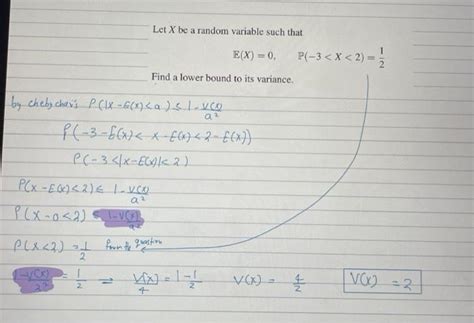 Let X be a random variable such that
E(X) = 0, P(−3 < X < 2) = 1/2
Find a lower bound to its variance.
by chebychev's P(|X - E(x)| < a) ≤ 1 - V(x)/a²
P(-3 - E(x) < x - E(x) < 2 - E(x))
P(-3 < |x - E(x)| < 2)
P(x - E(x) < 2) ≤ 1 - V(x)/a²
P(x - 0 < 2) ≤ 1 - V(x)/a²
P(x < 2) = 1/2 from the question
1 - V(x)/2² = 1/2 ⇒ V(x)/4 = 1 - 1/2 V(x) = 4/2 V(x) = 2